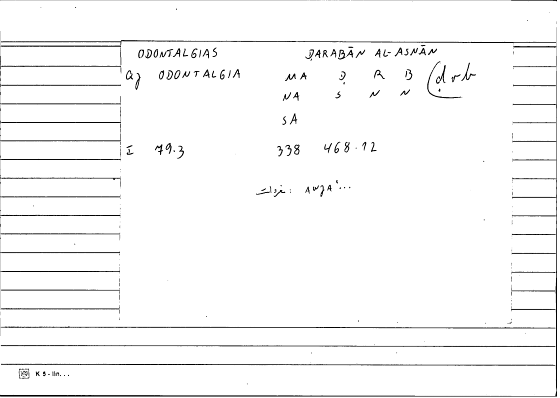 ODONTALGIAS ḌARABĀN AL-ASNĀN
Q₂ ODONTALGIA MA Ḍ R B (ḍrb
NA S N N
SA
I 79.3 338 468.12
: AWŷA'...
K 5 - lin...